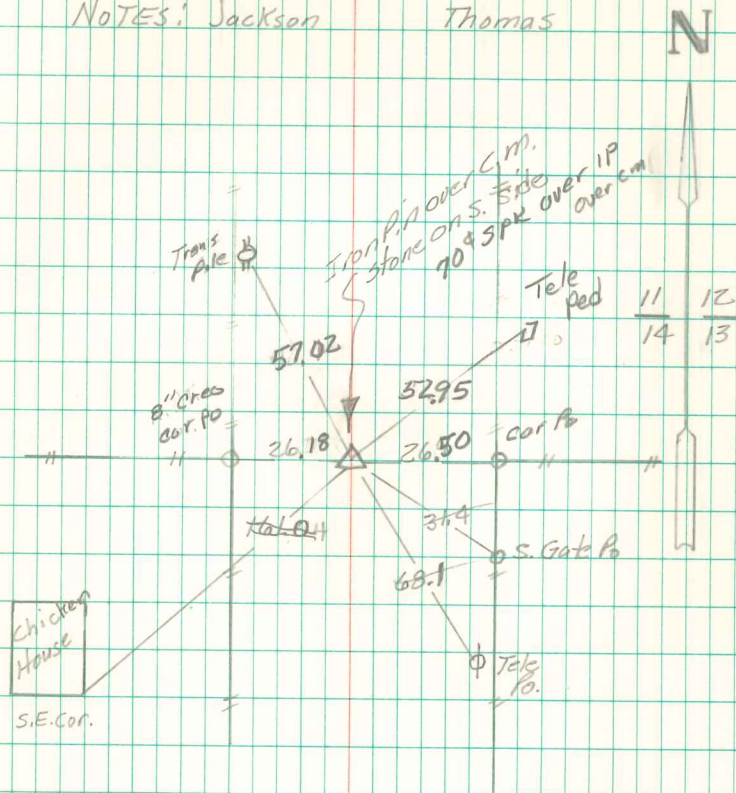 NOTES: Jackson Thomas
N
Iron Pin over C.m.
Stone on S. Side
70d SPK over IP
over cm
Trans
Pole
Tele
Ped
11 12
14 13
57.02
8" Creo
cor. Po
32.95
26.18
26.50
cor Po
31.4
S. Gate Po
68.1
Chicken
House
Tele
Po.
S.E. Cor.